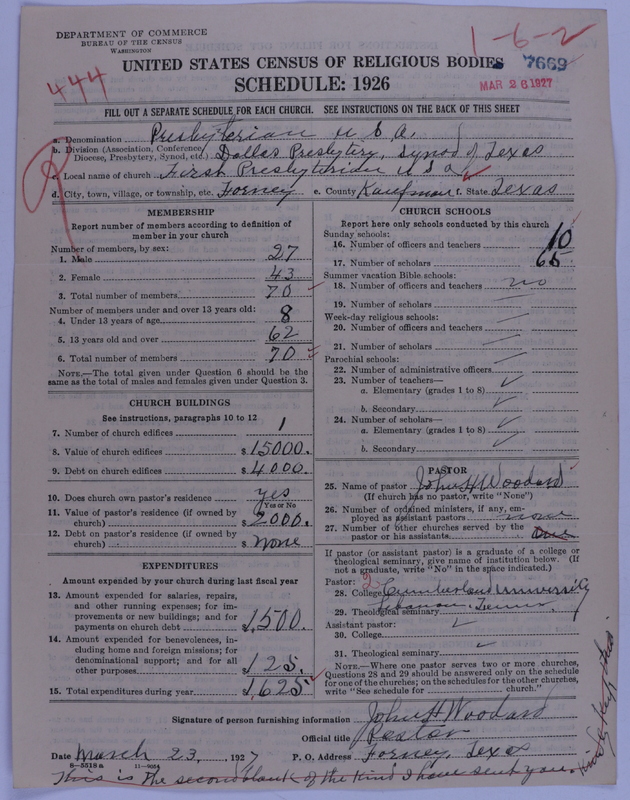 DEPARTMENT OF COMMERCE
BUREAU OF THE CENSUS
WASHINGTON
1-6-2
444
7669
MAR 26 1927
UNITED STATES CENSUS OF RELIGIOUS BODIES
SCHEDULE: 1926
FILL OUT A SEPARATE SCHEDULE FOR EACH CHURCH. SEE INSTRUCTIONS ON THE BACK OF THIS SHEET
R
a. Denomination Presbyterian U S A.
b. Division (Association, Conference, Diocese, Presbytery, Synod, etc.) Dallas Presbytery, Synod of Texas
c. Local name of church First Presbyterian U S a
d. City, town, village, or township, etc. Forney e. County Kaufman f. State Texas
MEMBERSHIP
Report number of members according to definition of
member in your church
Number of members, by sex:
1. Male 27
2. Female 43
3. Total number of members 70
Number of members under and over 13 years old:
4. Under 13 years of age 8
5. 13 years old and over 62
6. Total number of members 70
NOTE.—The total given under Question 6 should be the
same as the total of males and females given under Question 3.
CHURCH BUILDINGS
See instructions, paragraphs 10 to 12
7. Number of church edifices 1
8. Value of church edifices $15000.
9. Debt on church edifices $4000.
10. Does church own pastor's residence yes
Yes or No
11. Value of pastor's residence (if owned by
church) $2000.
12. Debt on pastor's residence (if owned by
church) $None
EXPENDITURES
Amount expended by your church during last fiscal year
13. Amount expended for salaries, repairs,
and other running expenses; for im-
provements or new buildings; and for
payments on church debt $1,500.
14. Amount expended for benevolences, in-
cluding home and foreign missions; for
denominational support; and for all
other purposes $125.
15. Total expenditures during year $1,625
CHURCH SCHOOLS
Report here only schools conducted by this church
Sunday schools:
16. Number of officers and teachers 10
17. Number of scholars 65
Summer vacation Bible schools:
18. Number of officers and teachers no
19. Number of scholars
Week-day religious schools:
20. Number of officers and teachers
21. Number of scholars
Parochial schools:
22. Number of administrative officers
23. Number of teachers—
a. Elementary (grades 1 to 8)
b. Secondary
24. Number of scholars—
a. Elementary (grades 1 to 8)
b. Secondary
PASTOR
25. Name of pastor John H Woodard
(If church has no pastor, write "None")
26. Number of ordained ministers, if any, em-
ployed as assistant pastors none
27. Number of other churches served by the
pastor or his assistants One
If pastor (or assistant pastor) is a graduate of a college or
theological seminary, give name of institution below. (If
not a graduate, write "No" in the space indicated.)
Pastor: 2
28. College Cumberland University
29. Theological seminary Lebanon, Tenn.
Assistant pastor:
30. College
31. Theological seminary
NOTE.—Where one pastor serves two or more churches,
Questions 28 and 29 should be answered only on the schedule
for one of the churches; on the schedules for the other churches,
write "See schedule for church."
Signature of person furnishing information John H Woodard
Official title Pastor
Date March 23, 1927 P. O. Address Forney, Texas
8—5518 a 11—9054
This is the second blank of the kind I have sent you. Kindly keep this.